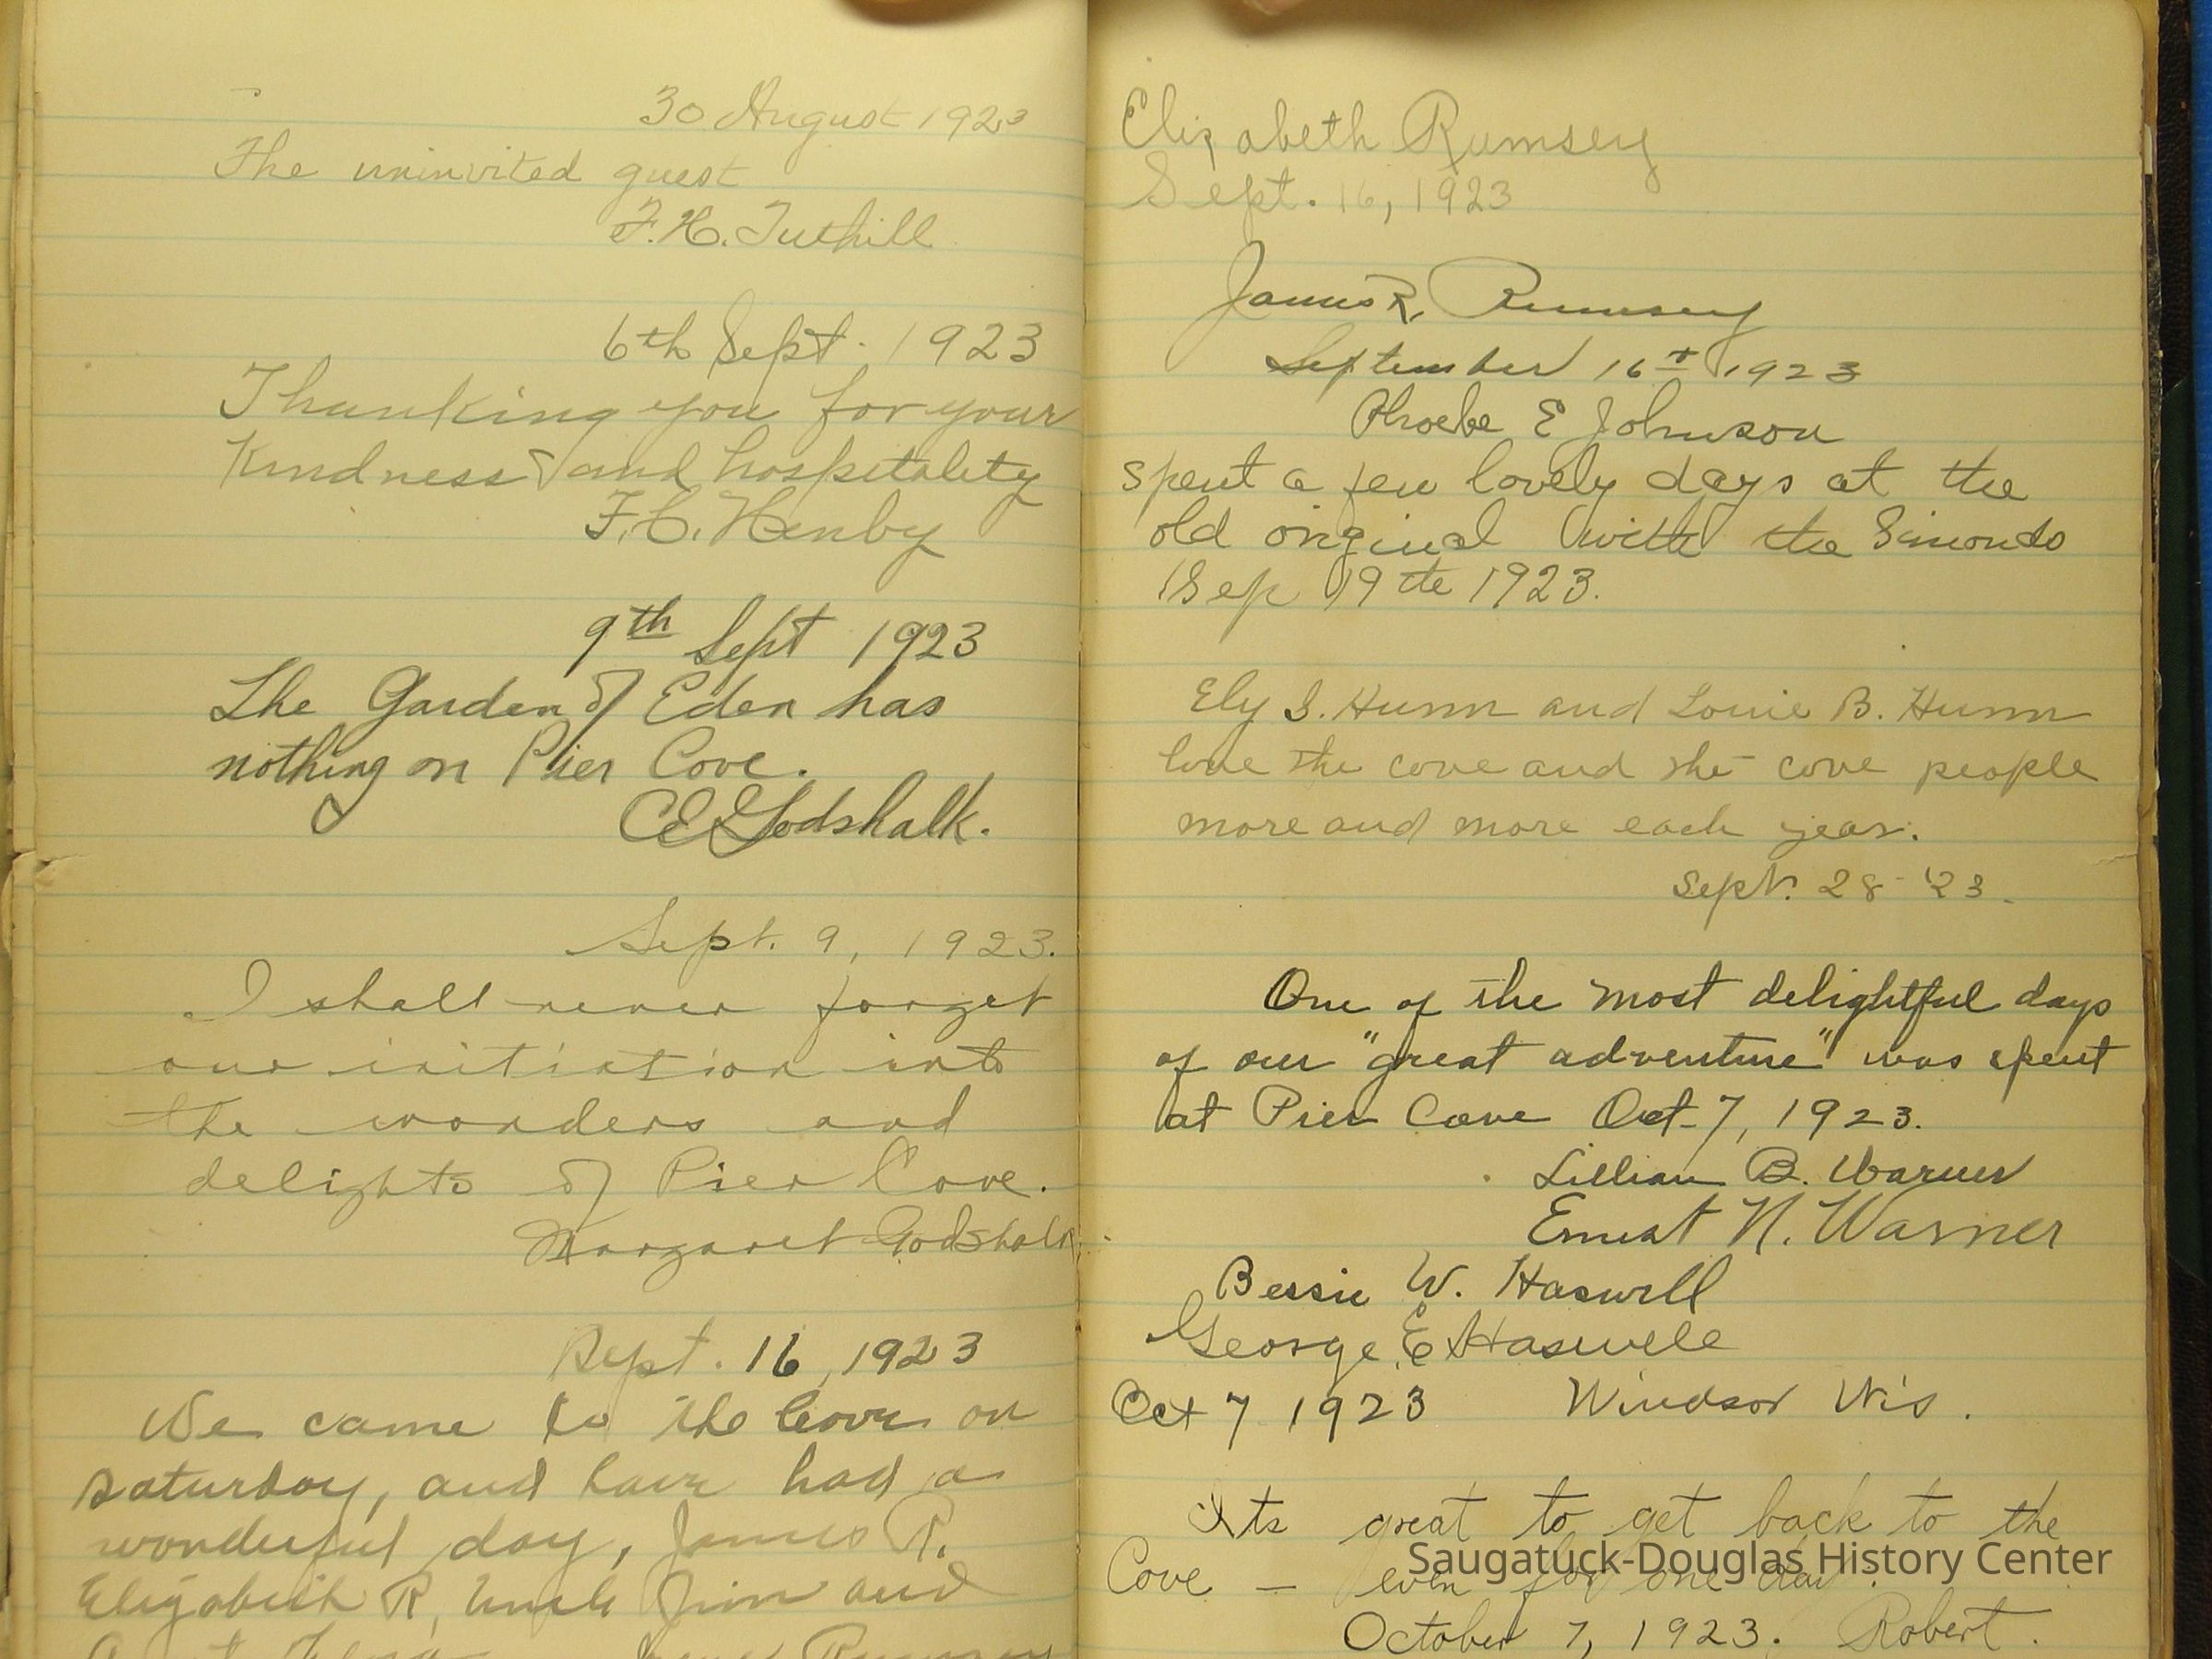 30 August 1923
The uninvited guest
F.H. Tuthill
6th Sept. 1923
Thanking you for your
Kindness and hospitality
F.C. Henby
9th Sept 1923
The Garden of Eden has
nothing on Pier Cove.
CE Godshalk.
Sept. 9, 1923.
I shall never forget
our initiation into
the wonders and
delights of Pier Cove.
Margaret Godshalk
Sept. 16, 1923
We came to the Cove on
Saturday, and have had a
wonderful day, James R.
Elizabeth R, Uncle Jim and
Elizabeth Rumsey
Sept. 16, 1923
James R. Rumsey
September 16th 1923
Phoebe E Johnson
spent a few lovely days at the
old original with the Simonds
Sep 19 the 1923.
Ely S. Hunn and Louie B. Hunn
love the cove and the cove people
more and more each year.
Sept. 28 '23.
One of the most delightful days
of our "great adventure" was spent
at Pier Cove Oct-7, 1923.
Lillian B. Warner
Ernest N. Warner
Bessie W. Haswell
George E Haswell
Oct 7 1923 Windsor Wis.
Its great to get back to the
Cove — even for one day.
October 7, 1923. Robert.
Saugatuck-Douglas History Center